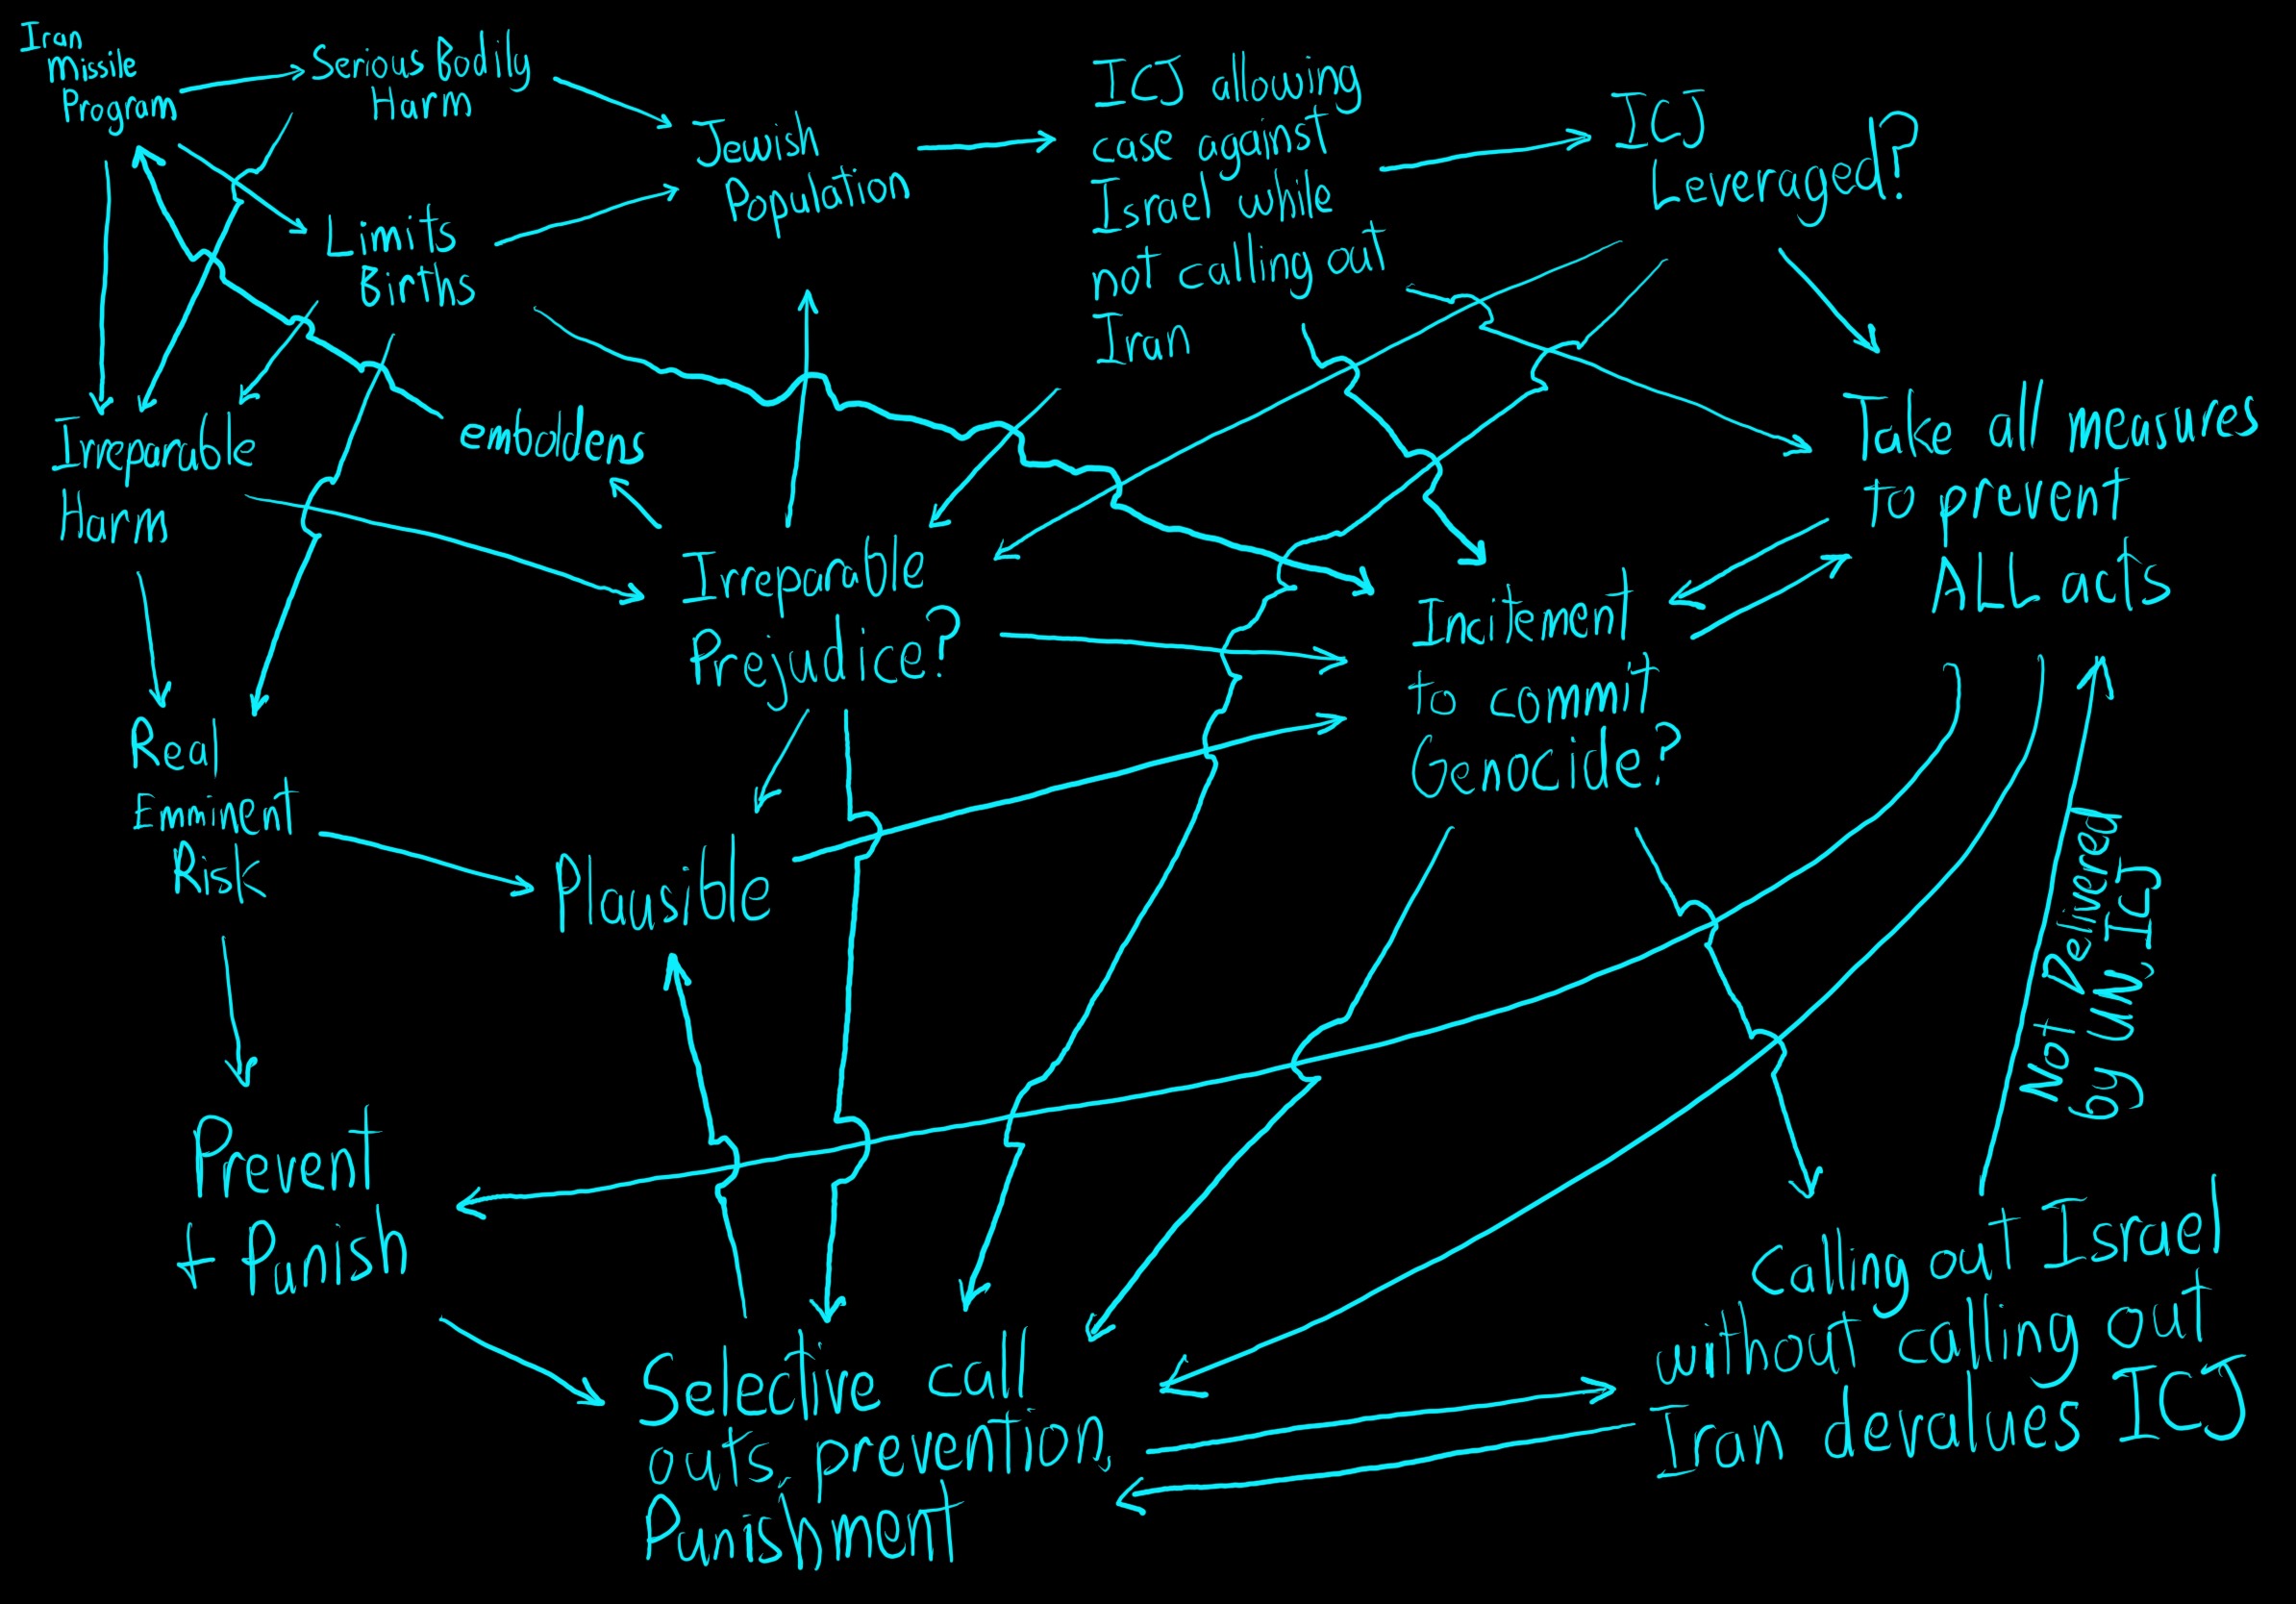 Iran
Missile
Program
Serious Bodily
Harm
Jewish
Population
ICJ allowing
case against
Israel while
not calling out
Iran
ICJ
Leveraged?
Limits
Births
Irreparable
Harm
emboldens
Irreparable
Prejudice?
Incitement
to commit
Genocide?
Take all measures
to prevent
ALL acts
Real
Emminent
Risk
Plausible
Not Delivered
by UN, ICJ
Prevent
+ Punish
Selective call
outs, prevention,
Punishment
Calling out Israel
without calling out
Iran devalues ICJ